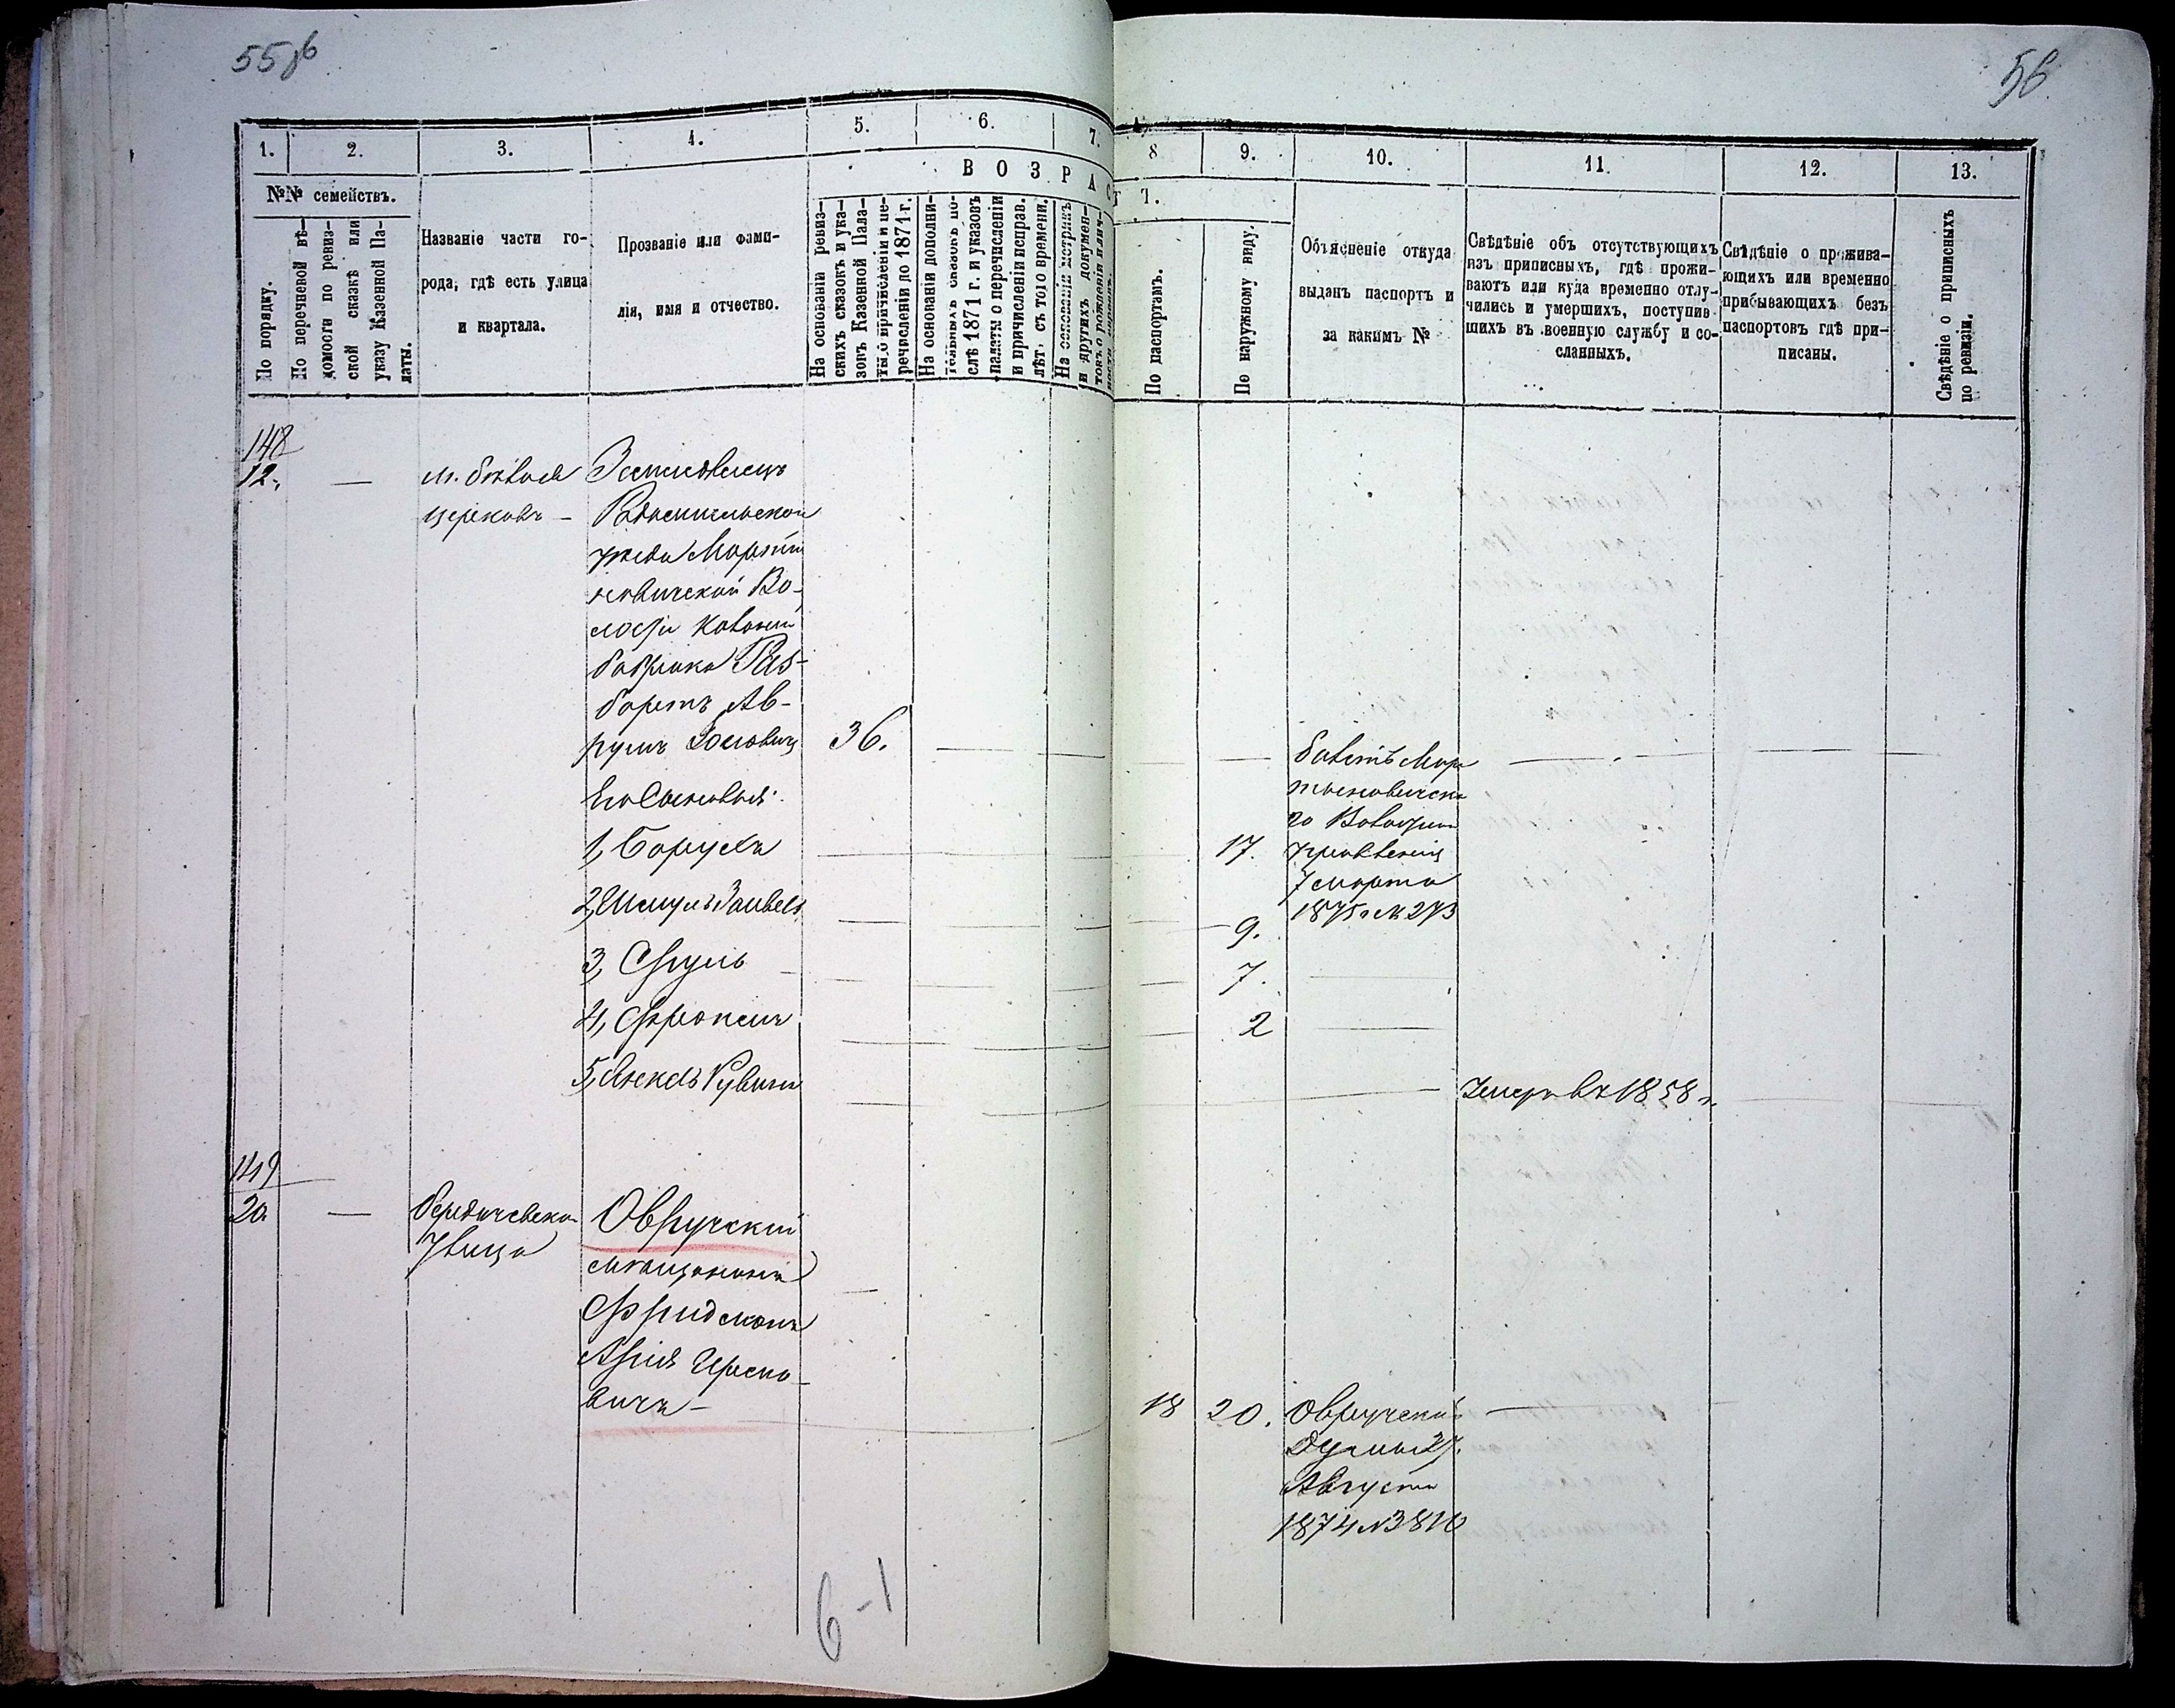 55об
56
1.
2.
3.
4.
5.
6.
7.
8
9.
10.
11.
12.
13.
№№ семействъ.
ВОЗРАС
Т.
По порядку.
По перечневой вѣ-
домости по ревиз-
ской сказкѣ или
указу Казенной Па-
латы.
Названіе части го-
рода, гдѣ есть улица
и квартала.
Прозваніе или фами-
лія, имя и отчество.
На основаніи ревиз-
скихъ сказокъ и ука-
зовъ Казенной Пала-
ты о причисленіи и пе-
речисленіи до 1871 г.
На основаніи дополни-
тельныхъ сказокъ по-
слѣ 1871 г. и указовъ
палаты о перечисленіи
и причисленіи исправ.
лѣтъ съ того времени.
На основаніи метрикъ
и другихъ докумен-
товъ о рожденіи
По паспортамъ.
По наружному виду.
Объясненіе откуда
выданъ паспортъ и
за какимъ №
Свѣдѣніе объ отсутствующихъ
изъ приписныхъ, гдѣ прожи-
ваютъ или куда временно отлу-
чились и умершихъ, поступив-
щихъ въ военную службу и со-
сланныхъ.
Свѣдѣніе о прожива-
ющихъ или временно
прибывающихъ безъ
паспортовъ гдѣ при-
писаны.
Свѣдѣніе о приписныхъ
по ревизіи.
148
12.
—
м. бѣлая
церковь —
Земледѣлецъ
Радомысльскаго
уѣзда Марты
новичской Во-
лости Колоніи
Ав-
румъ
36.
Его Сыновья:
1, Борухъ
17.
2, Шмуль
9.
3, Сруль
7.
4, Фроимъ
2
5,
Умеръ въ 1858 г.
билетъ Мар
тыновичска
го Волостн
Правленія
7 марта
1875 г № 273
149
20.
—
бердичевска
Улица
Овручскій
мѣщанинъ
Фридманъ
Арія Ицко-
вичъ —
18
20.
Овручской
Думы 27.
Августа
1874 №
6-1